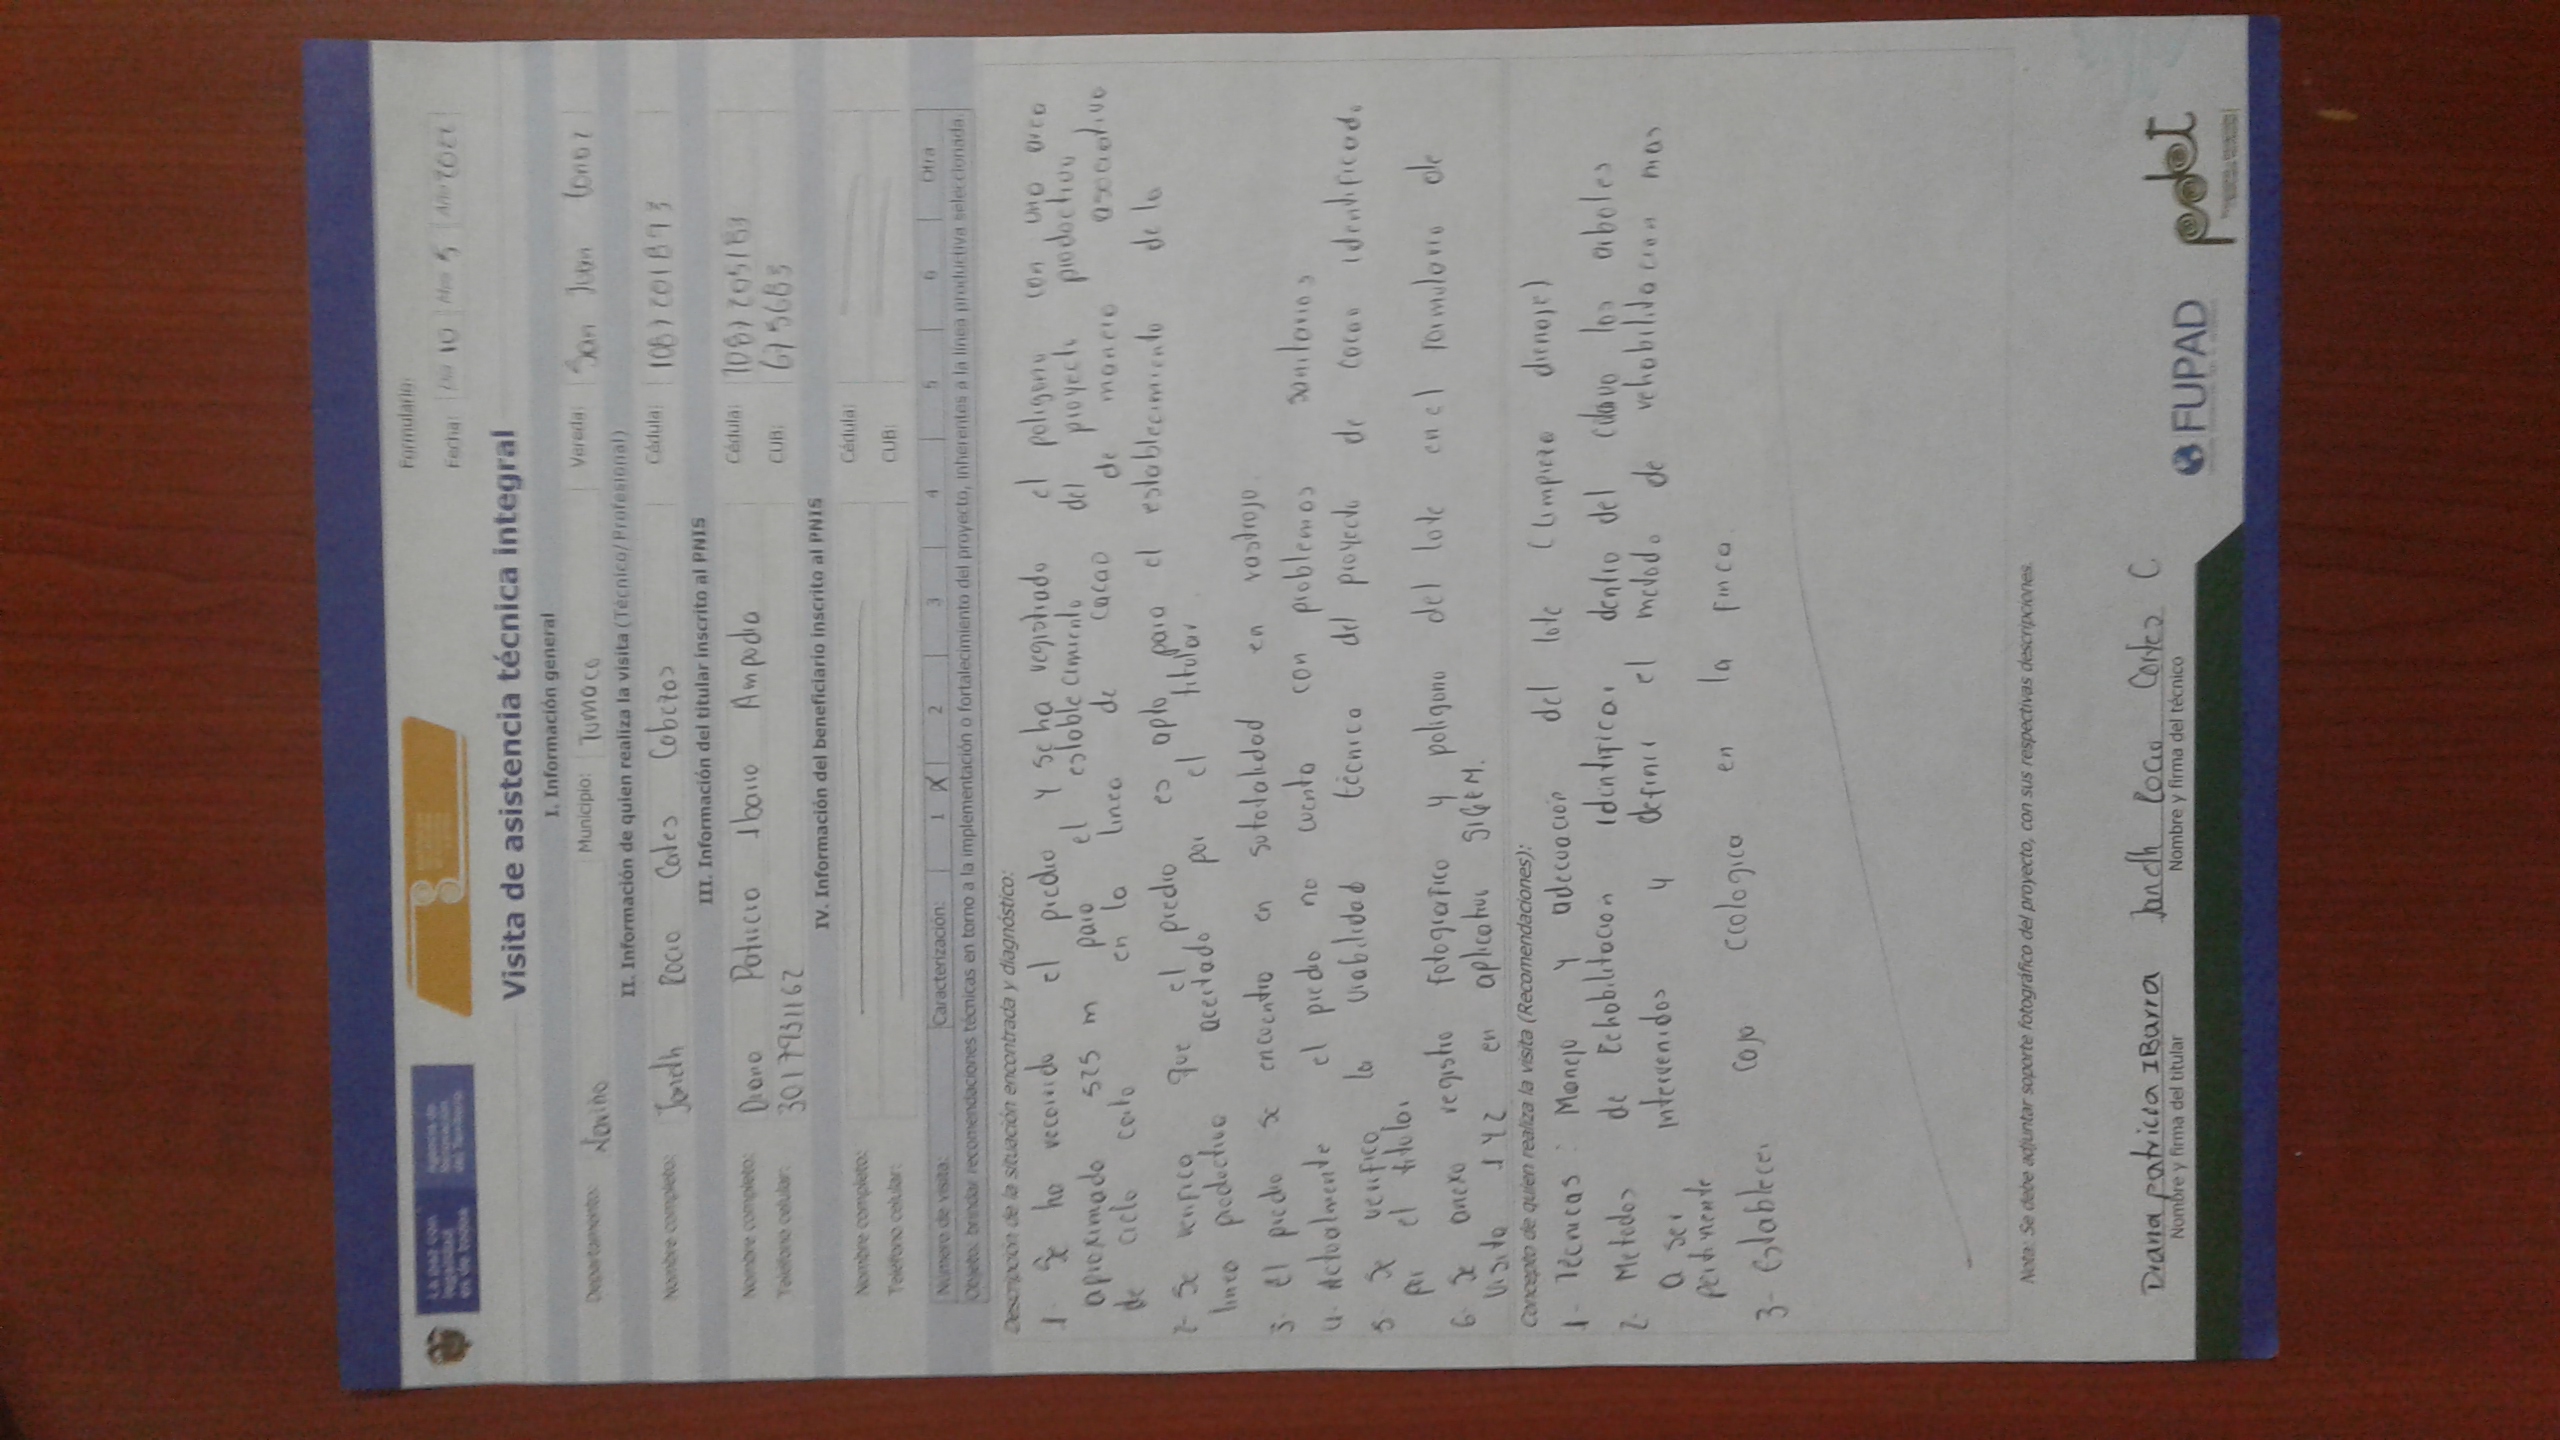 La paz con
legalidad
es de todos
Formulario:
Fecha: Día 10 Mes 5 Año 2022
Visita de asistencia técnica integral
I. Información general
Departamento: Nariño Municipio: Tumaco Vereda: San Juan
II. Información de quien realiza la visita (Técnico/Profesional)
Nombre completo: Janeth Rocio Cortes Cabezas Cédula: 1087201893
III. Información del titular inscrito al PNIS
Nombre completo: Diana Patricia Ibarra Ampudia Cédula: 1087205183
Teléfono celular: 3017931162 CUB: 675683
IV. Información del beneficiario inscrito al PNIS
Nombre completo: Cédula:
Teléfono celular: CUB:
Número de visita: Caracterización: 1 X 2 3 4 5 6 Otra
Objeto: brindar recomendaciones técnicas en torno a la implementación o fortalecimiento del proyecto, inherentes a la línea productiva seleccionada.
Descripción de la situación encontrada y diagnóstico:
1- Se ha recorrido el predio y se ha registrado el poligono con una area
aproximado 525 m para el establecimiento del proyecto productivo
de ciclo corto en la linea de cacao de manera asociativo
2- Se verifico que el predio es apto para el establecimiento de la
linea productiva aceitado por el titular
3- el predio se encuentra en sutotalidad en rastrojo.
4- Actualmente el predio no cuenta con problemas sanitarios
5- Se verifico la viabilidad técnica del proyecto de cacao identificado
por el titular
6- Se anexo registro fotografico y poligono del lote en el formulario de
visita 1 y 2 en aplicativo SIGEM.
Concepto de quien realiza la visita (Recomendaciones):
1- Técnicas: Manejo y adecuación del lote (limpieza drenaje)
2- Metodos de Rehabilitacion identificar dentro del cultivo los arboles
a ser intervenidos y definir el metodo de rehabilitacion mas
pertinente
3- Establecer caja ecologica en la finca.
Nota: Se debe adjuntar soporte fotográfico del proyecto, con sus respectivas descripciones.
Diana patricia IBarra Janeth Rocio Cortes C
Nombre y firma del titular Nombre y firma del técnico
FUPAD
pdet